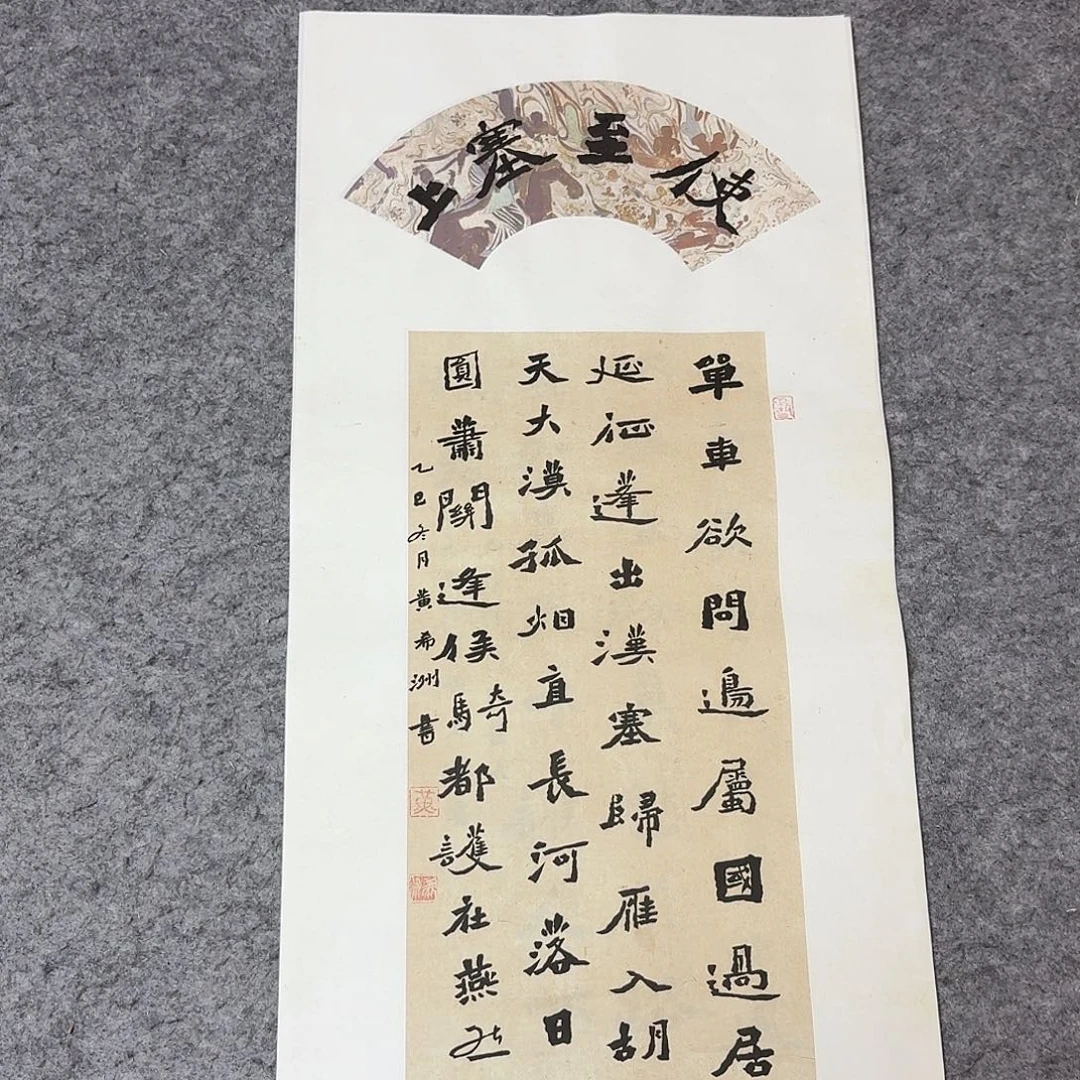 使至塞上
單車欲問邊屬國過居
延征蓬出漢塞歸雁入胡
天大漠孤烟直長河落日
圓蕭關逢候騎都護在燕然
乙巳冬月黄希洲書
黄